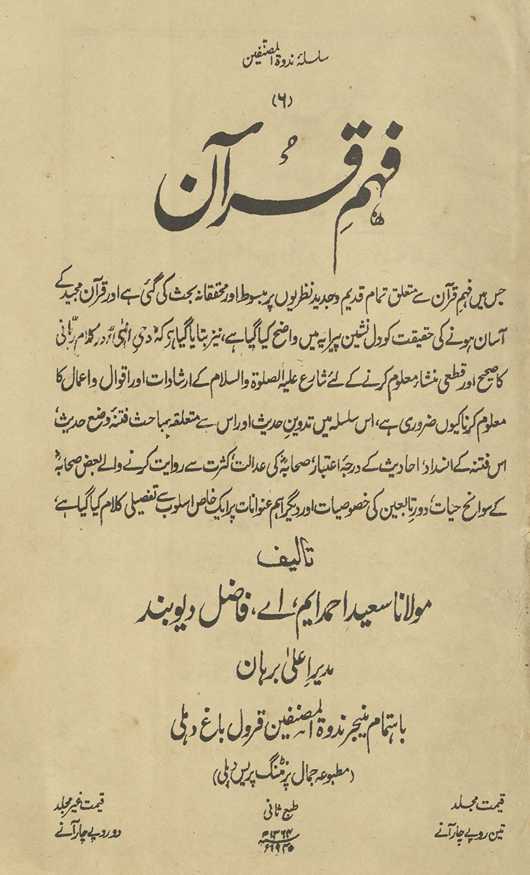 سلسلۂ ندوۃ المصنفین
(۶)
فہمِ قُرآن
جس میں فہمِ قرآن سے متعلق تمام قدیم و جدید نظریوں پر مبسوط اور محققانہ بحث کی گئی ہے اور قرآن مجید کے
آسان ہونے کی حقیقت کو دل نشین پیرایہ میں واضح کیا گیا ہے، نیز بتایا گیا ہے کہ وحیِ الٰہی اور کلامِ ربّانی
کا صحیح اور قطعی منشا معلوم کرنے کے لئے شارع علیہ الصلوٰۃ والسلام کے ارشادات اور اقوال و اعمال کا
معلوم کرنا کیوں ضروری ہے، اس سلسلہ میں تدوینِ حدیث اور اس سے متعلقہ مباحث فتنۂ وضع حدیث،
اس فتنہ کے انسداد، احادیث کے درجۂ اعتبار، صحابہؓ کی عدالت، کثرت سے روایت کرنے والے بعض صحابہؓ
کے سوانح حیات، دورِ تابعین کی خصوصیات اور دیگر اہم عنوانات پر ایک خاص اسلوب سے تفصیلی کلام کیا گیا ہے،
تالیف
مولانا سعید احمد ایم، اے، فاضل دیوبند
مدیرِ اعلیٰ برہان
باہتمام منیجر ندوۃ المصنفین قرول باغ دہلی
(مطبوعہ جمال پرنٹنگ پریس دہلی)
قیمت مجلد
تین روپے چار آنے
طبع ثانی
۱۳۶۴ھ
۱۹۴۵ء
قیمت غیر مجلد
دو روپے چار آنے